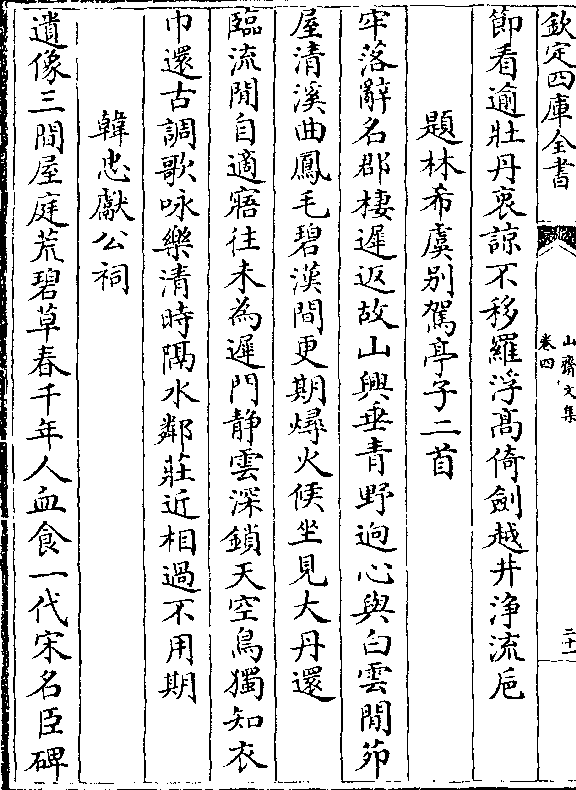 欽定四庫全書
山齋文集
卷四
二十一
節看逾壯丹衷諒不移羅浮髙倚劍越井浄流巵
題林希虞别駕亭子二首
牢落辭名郡棲遲返故山興垂青野逈心與白雲閒茆
屋清溪曲鳳毛碧漢間更期燖火候坐見大丹還
臨流閒自適寤往未為遲門静雲深鎖天空鳥獨知衣
巾還古調歌咏樂清時隔水鄰莊近相過不用期
韓忠獻公祠
遺像三間屋庭荒碧草春千年人血食一代宋名臣碑